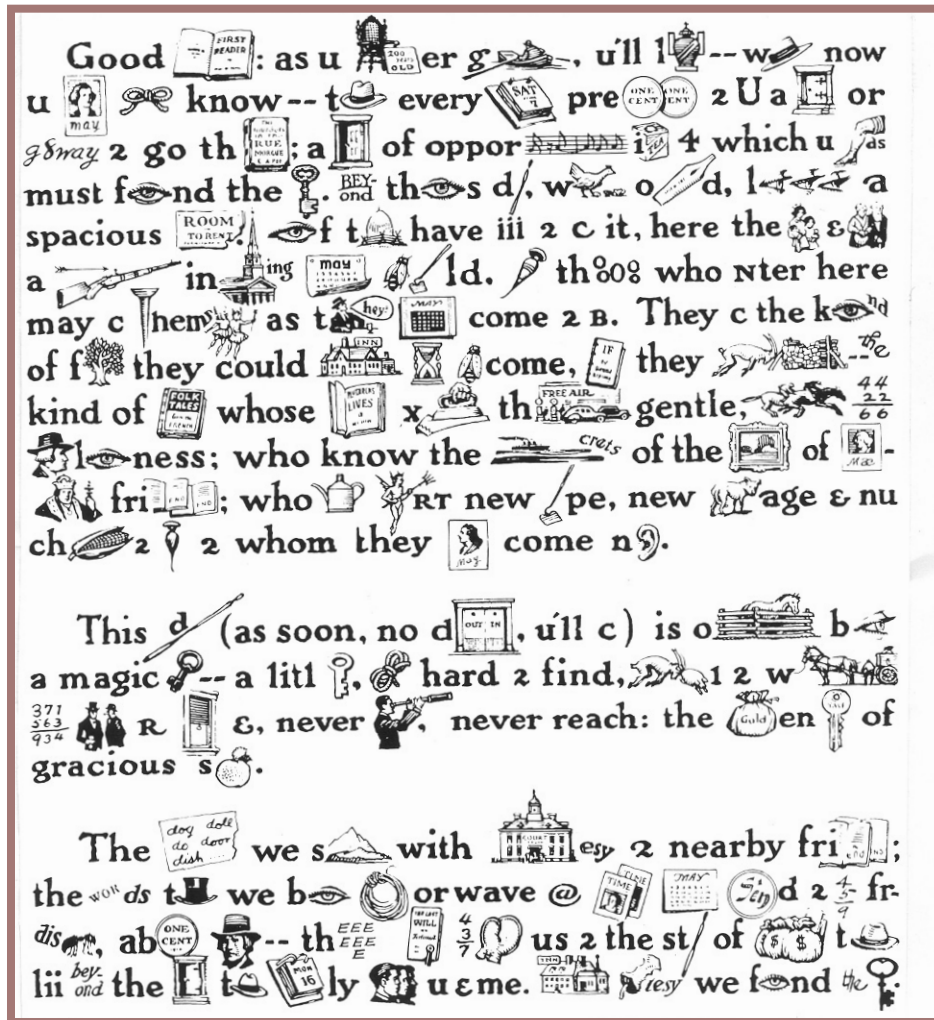 Good FIRST READER : as u 200 YRS OLD er g , u'll l -- w now
u may know -- t every SAT 7 pre ONE CENT ONE CENT 2 U a or
g8way 2 go th RUE ; a of oppor i 4 which u ds
must f nd the . BEY-ond th s d , w o d, l a
spacious ROOM TO RENT f t have iii 2 c it, here the &
a in ing may ld. th so8 who Nter here
may c hem as t hey! MAY come 2 B. They c the k nd
of f they could INN come, IF they -- the
kind of FOLK TALES whose LIVES x th FREE AIR gentle, 44 22 66
l ness; who know the crets of the of Mae -
fri END END ; who RT new pe, new age & nu
ch 2 2 whom they May come n .
This d (as soon, no d OUT IN , u'll c) is o b
a magic -- a litl , hard 2 find, 1 2 w
371 563 934 R &, never , never reach: the Gold en YALE of
gracious s .
The dog doll do door dish ... we s with COURT esy 2 nearby fri END END ;
the WOR ds t we b or wave @ TIME TIME MAY d 2 4 5 9 fr-
dis , ab ONE CENT -- th EEE EEE E WILL 4 3 7 us 2 the st of $ $ t
lii bey-ond the t MON 16 ly u & me. INN iesy we f nd the .